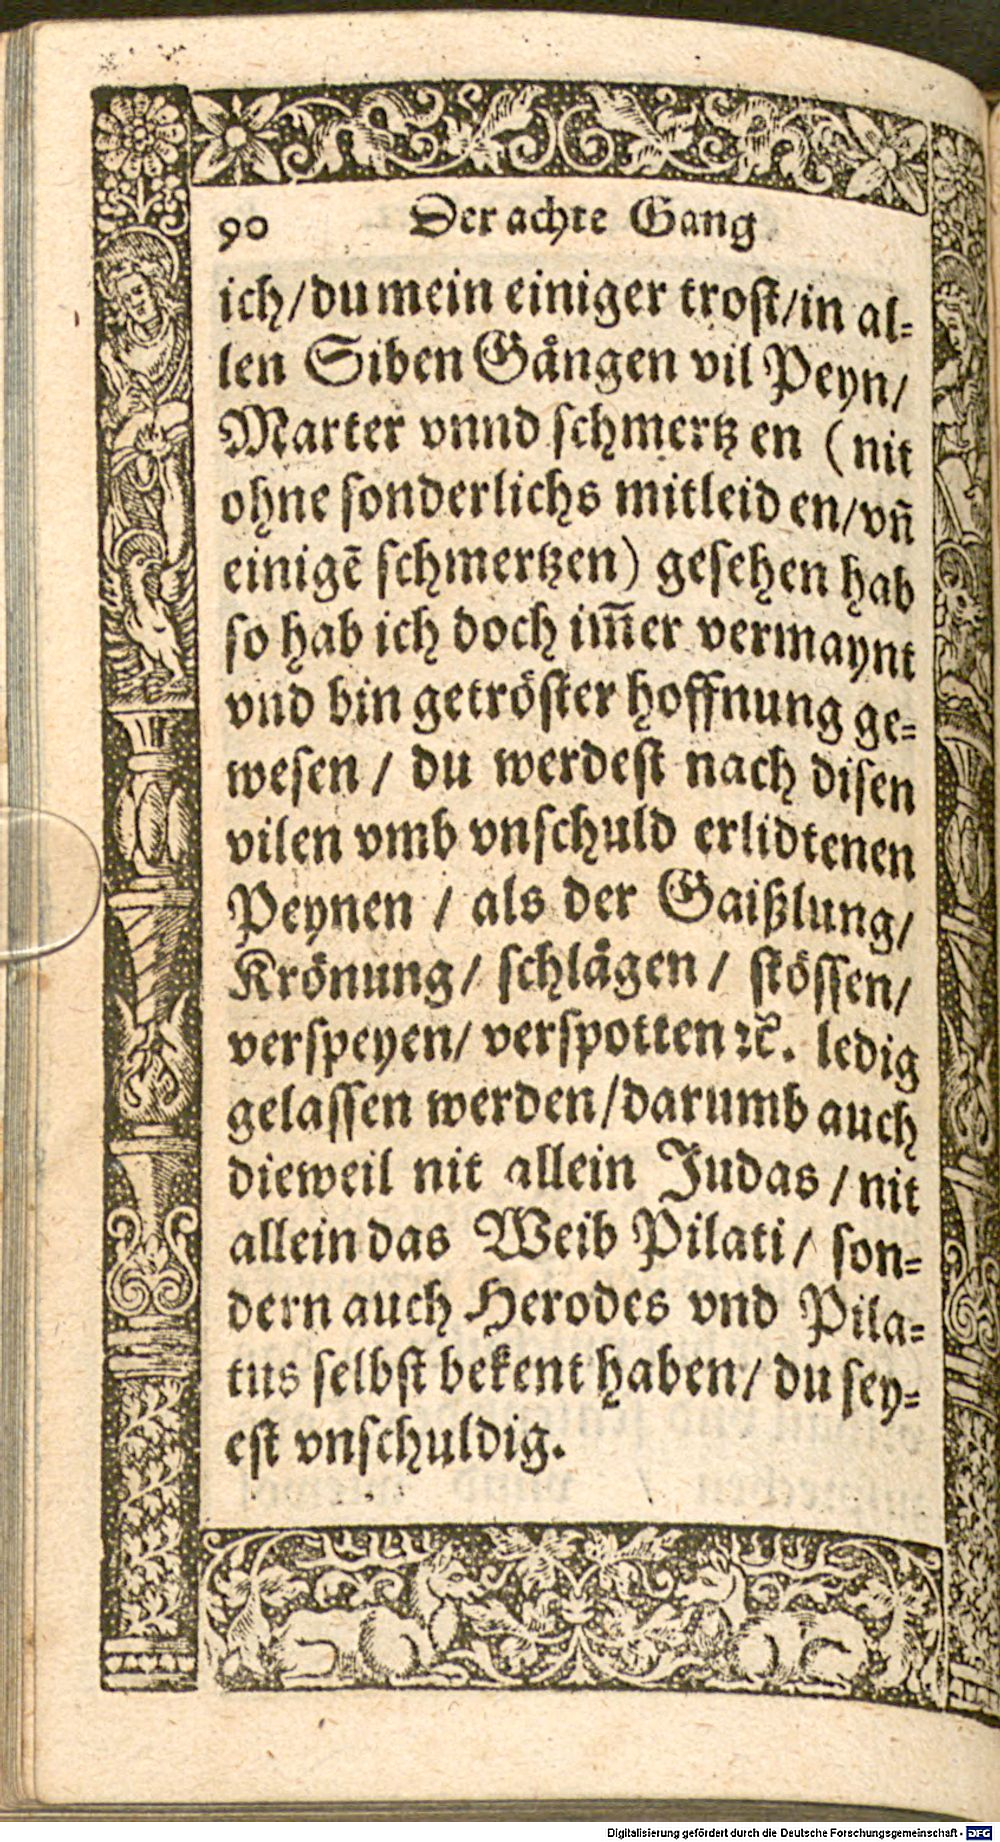 90 Der achte Gang
ich/du mein einiger trost/in al⸗
len Siben Gången vil Peyn/
Marter vnnd schmertzen (nit
ohne sonderlichs mitleiden/vñ
einigē schmertzen) gesehen hab
so hab ich doch im̃er vermaynt
vnd bin getröster hoffnung ge⸗
wesen / du werdest nach disen
vilen vmb vnschuld erlidtenen
Peynen / als der Gaißlung/
Krönung/ schlågen / stössen/
verspeyen/ verspotten ꝛc. ledig
gelassen werden/darumb auch
dieweil nit allein Judas / nit
allein das Weib Pilati / son⸗
dern auch Herodes vnd Pila⸗
tus selbst bekent haben/ du sey⸗
est vnschuldig.
Digitalisierung gefördert durch die Deutsche Forschungsgemeinschaft - DFG